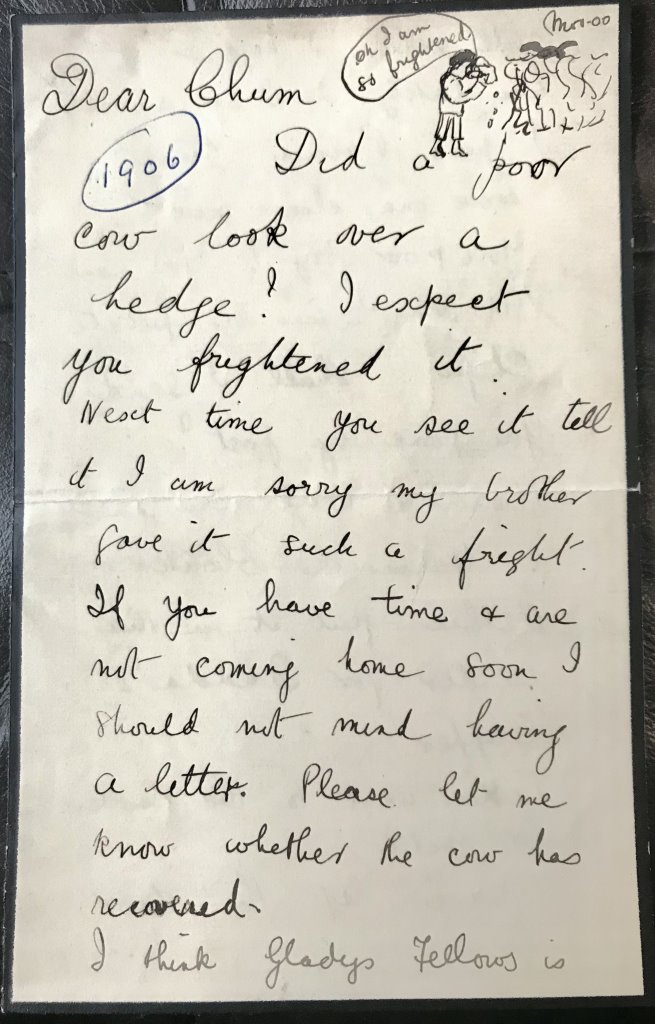 oh I am
so frightened
Moo-oo
Dear Chum
1906
Did a poor
cow look over a
hedge! I expect
you frightened it.
Next time you see it tell
it I am sorry my brother
gave it such a fright.
If you have time & are
not coming home soon I
should not mind having
a letter. Please let me
know whether the cow has
recovered-
I think Gladys Fellows is